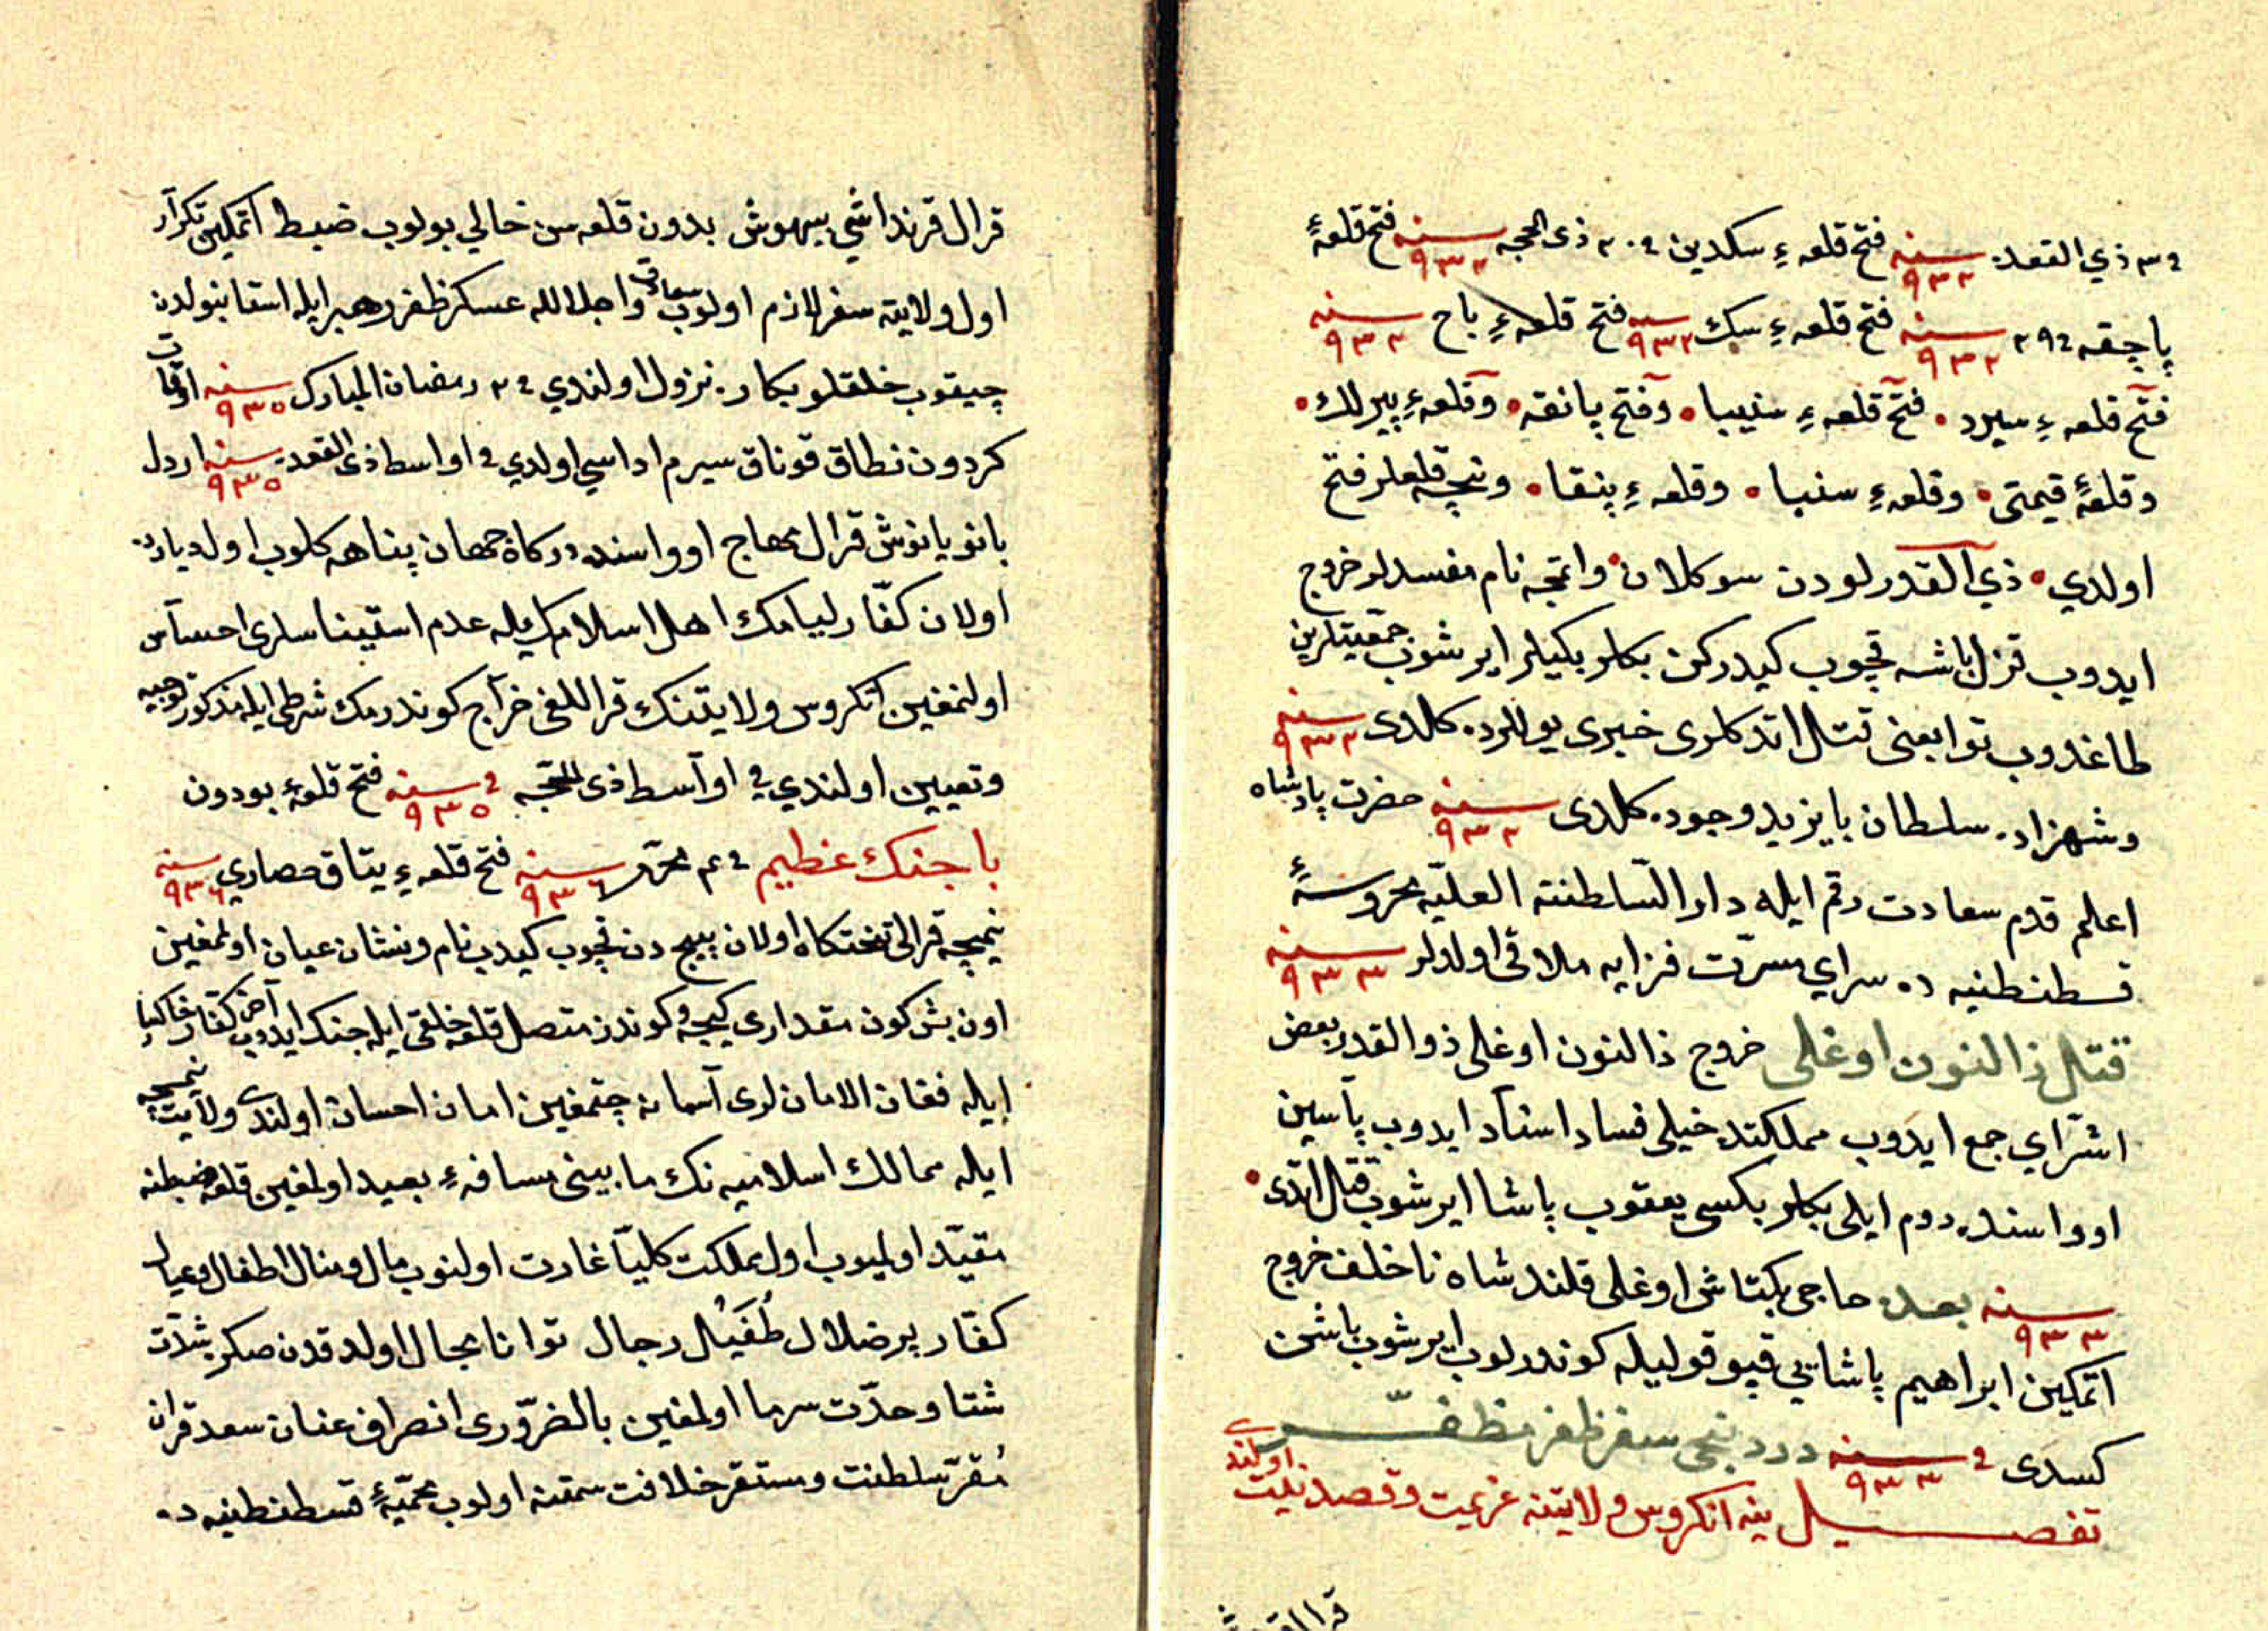 في ٣ ذي القعده سنه ٩٣٢ فتح قلعهٔ سكدين في ٢٠ ذى الحجه سنه ٩٣٢ فتح قلعهٔ
پاچقه في ٢٩ سنه ٩٣٢ فتح قلعهٔ سك سنه ٩٣٢ فتح قلعهٔ باح سنه ٩٣٢
فتح قلعهٔ سيرد • فتح قلعهٔ سنيبا • وفتح پانقه • وقلعهٔ پيرلك •
وقلعهٔ قيمتى • وقلعهٔ سنبا • وقلعهٔ پنقا • ونيچه قلعلر فتح
اولدي • ذي القدرلودن سوكلان • واتمجه نام مفسدلر خروج
ايدوب قزل باشه قچوب كيدركن بكلربكيلر ايرشوب جمعيتلرين
طاغدوب توابعنى قتال اتدكلرى خبرى يوللرده كلدى سنه ٩٣٢
وشهزاده سلطان بايزيد وجوده كلدى سنه ٩٣٢ حضرت پادشاه
اعلم قدم سعادت رقم ايله دار السلطنته العليّه محروسهٔ
قسطنطنيه ده سراي مسرّت فزايه ملاقى اولدلر سنه ٩٣٣
قتال ذا لنون اوغلى خروج ذالنون اوغلى ذو القدر بعض
اشرّاي جمع ايدوب مملكتده خيلى فساد اسناد ايدوب پاسين
اوواسنده روم ايلى بكلربكسى يعقوب پاشا ايرشوب قتال اتدى •
سنه ٩٣٣ بعده حاجى بكتاش اوغلى قلندر شاه ناخلف خروج
اتمكين ابراهيم پاشايي قپو قوليله كوندرلوب ايرشوب باشن
كسدى في سنه ٩٣٣ دردنجى سفر ظفر مظفّر
تفصيل ينه انكروس ولايتنه عزيمت وقصد نيت اولندى
قرال قرنداشي بيهوش بدون قلعه سن خالي بولوب ضبط اتمكين تكرار
اول ولايته سفر لازم اولوب سعادت واجلالله عسكر ظفر رهبر ايله استانبولدن
چيقوب خلقلو بكاره نزول اولندي في ٢ رمضان المبارك سنه ٩٣٥ اوقات
كردون نطاق قوناق سيرم اداسي اولدي في اواسط ذى القعده سنه ٩٣٥ اردل
بانو يانوش قرال مهاج اوواسنده دركاه جهان پناهه كلوب اول ديارده
اولان كفّار ليامك اهل اسلام ايله عدم استيناسلرى احساس
اولنمغين انكروس ولايتنك قراللغى خراج كوندرمك شرطى ايله مذكوره توجيه
وتعيين اولندي في اواسط ذى الحجّه في سنه ٩٣٥ فتح قلعهٔ بودون
با جنك عظيم في ٤ محرّم سنه ٩٣٦ فتح قلعهٔ يتاق حصاري سنه ٩٣٦
نيمچه قرالى تختكاه اولان بيج دن قچوب كيدب نام ونشان عيان اولمغين
اون بش كون مقدارى كيجه وكوندز متصل قلعه خلقى ايله جنك ايدوب آخر كفّار خاكيا
ايله فغان الامان لرى آسمانه چقمغين امان احسان اولندى ولايت نيمچه
ايله ممالك اسلاميه نك مابينى مسافهٔ بعيد اولمغين قلعه ضبطنه
مقيّد اولميوب اول مملكت كليّا غارت اولنوب مال ومنال اطفال وعيال
كفّار پرضلال طُفَيْل رجال توانا مجال اولدقدن صكره شدّت
شتا وحدّت سرما اولمغين بالضرّورى انصراف عنان سعد قران
مُقرّ سلطنت ومستقر خلافت سمتنه اولوب محميّهٔ قسطنطنيه ده